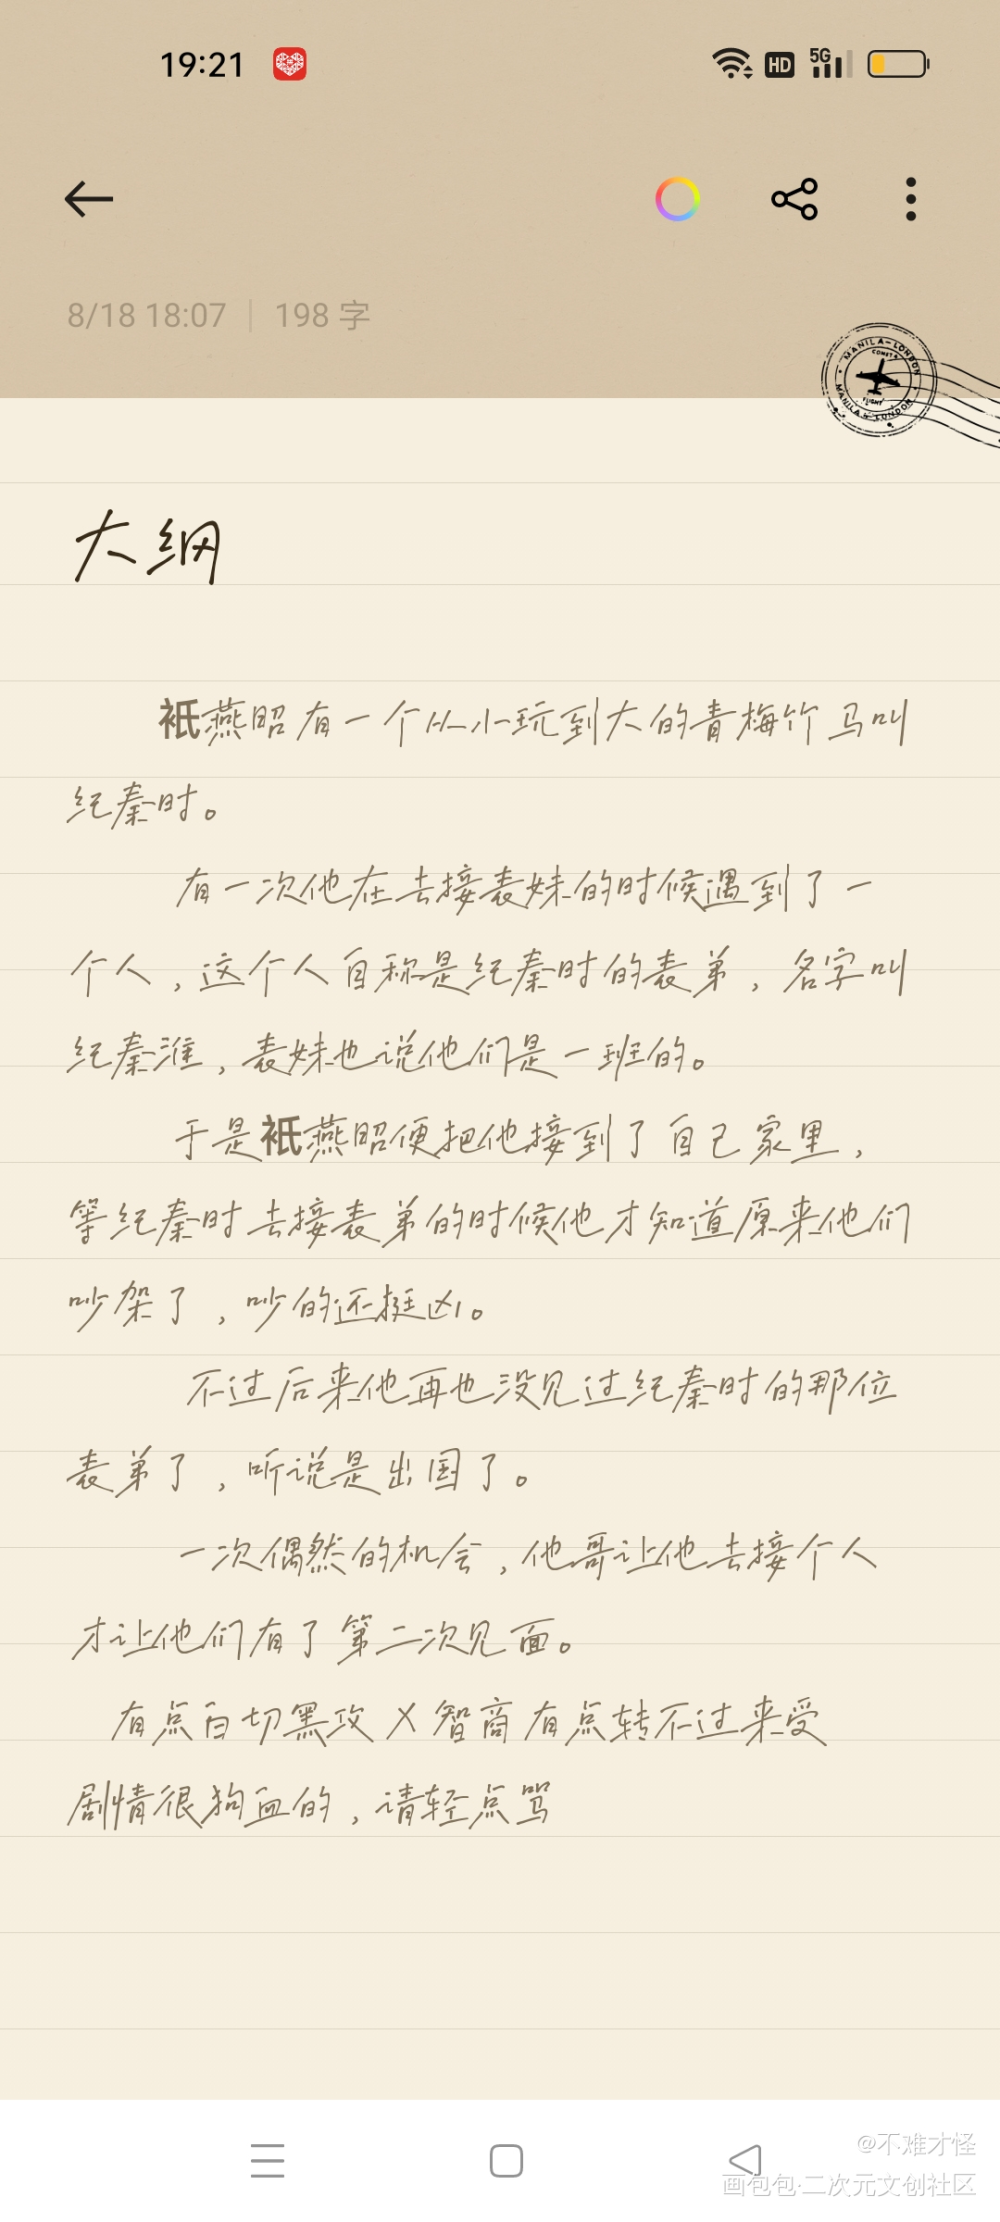 19:21
HD 5G
8/18 18:07 | 198 字
MANILA-LONDON
COMET
FLIGHT
MANILA & LONDON
大纲
衹燕昭有一个从小玩到大的青梅竹马叫
纪秦时。
有一次他在去接表妹的时候遇到了一
个人，这个人自称是纪秦时的表弟，名字叫
纪秦淮，表妹也说他们是一班的。
于是衹燕昭便把他接到了自己家里，
等纪秦时去接表弟的时候他才知道原来他们
吵架了，吵的还挺凶。
不过后来他再也没见过纪秦时的那位
表弟了，听说是出国了。
一次偶然的机会，他哥让他去接个人
才让他们有了第二次见面。
有点白切黑攻X智商有点转不过来受
剧情很狗血的，请轻点骂
@不难才怪
画包包·二次元文创社区